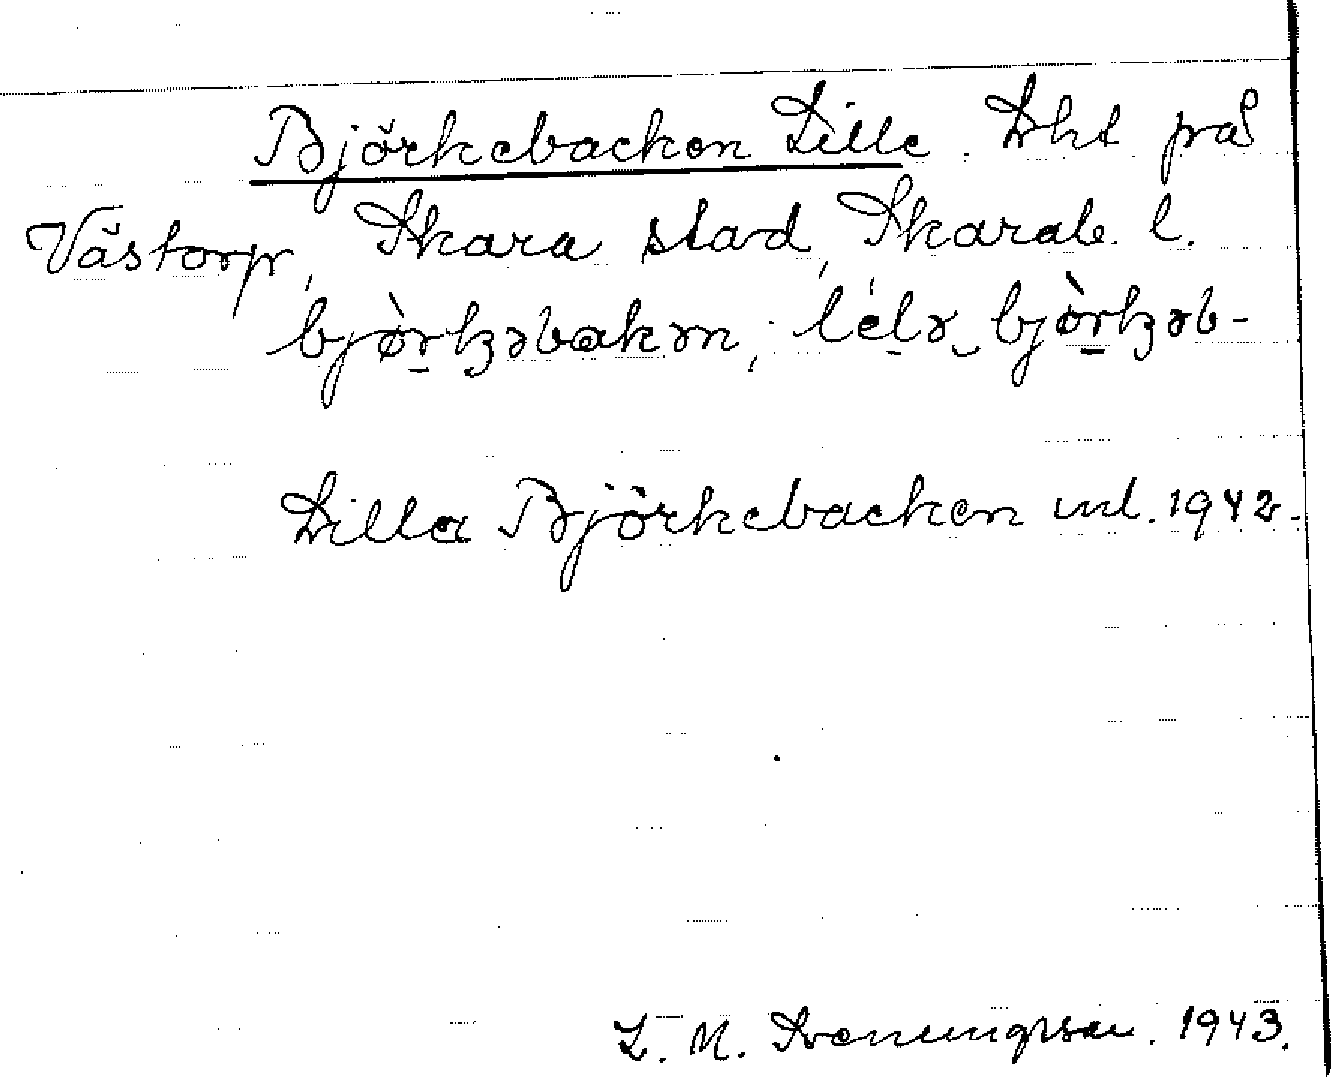 Björkebacken Lille. Lht på
Västorp, Skara stad, Skarab. l.
bjòrꞣəbakən, lélə bjòrꞣəb-
Lilla Björkebacken uul. 1942.
L. M. Svenungsson. 1943.